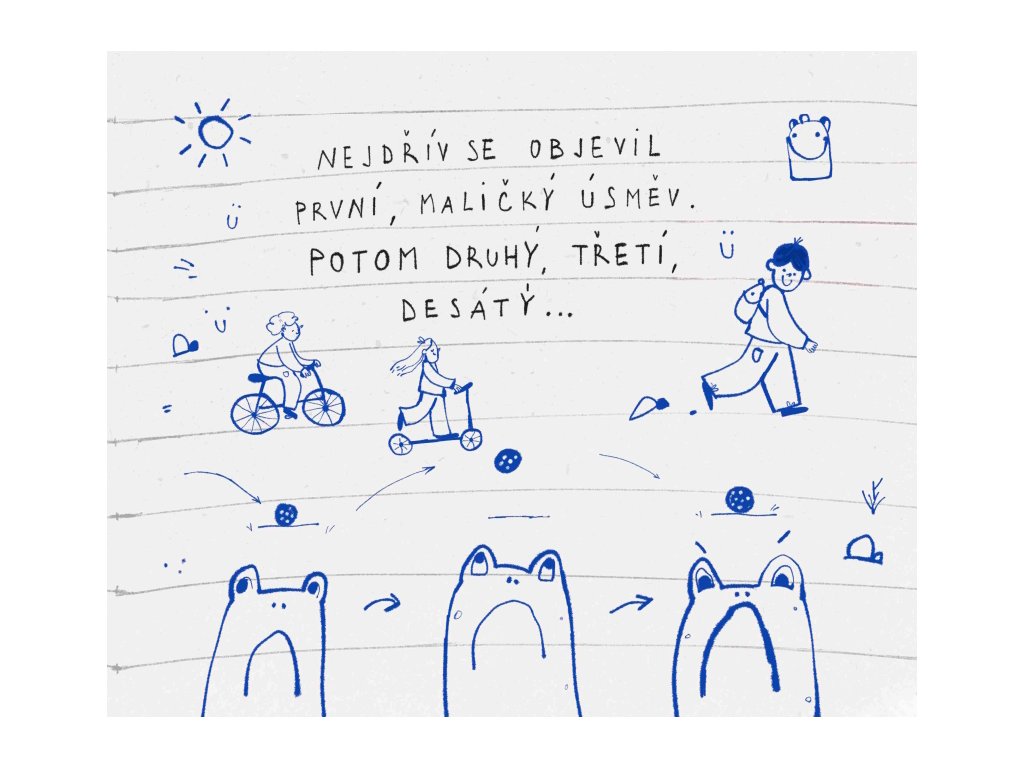 NEJDŘÍV SE OBJEVIL
PRVNÍ, MALIČKÝ ÚSMĚV.
POTOM DRUHÝ, TŘETÍ,
DESÁTÝ...